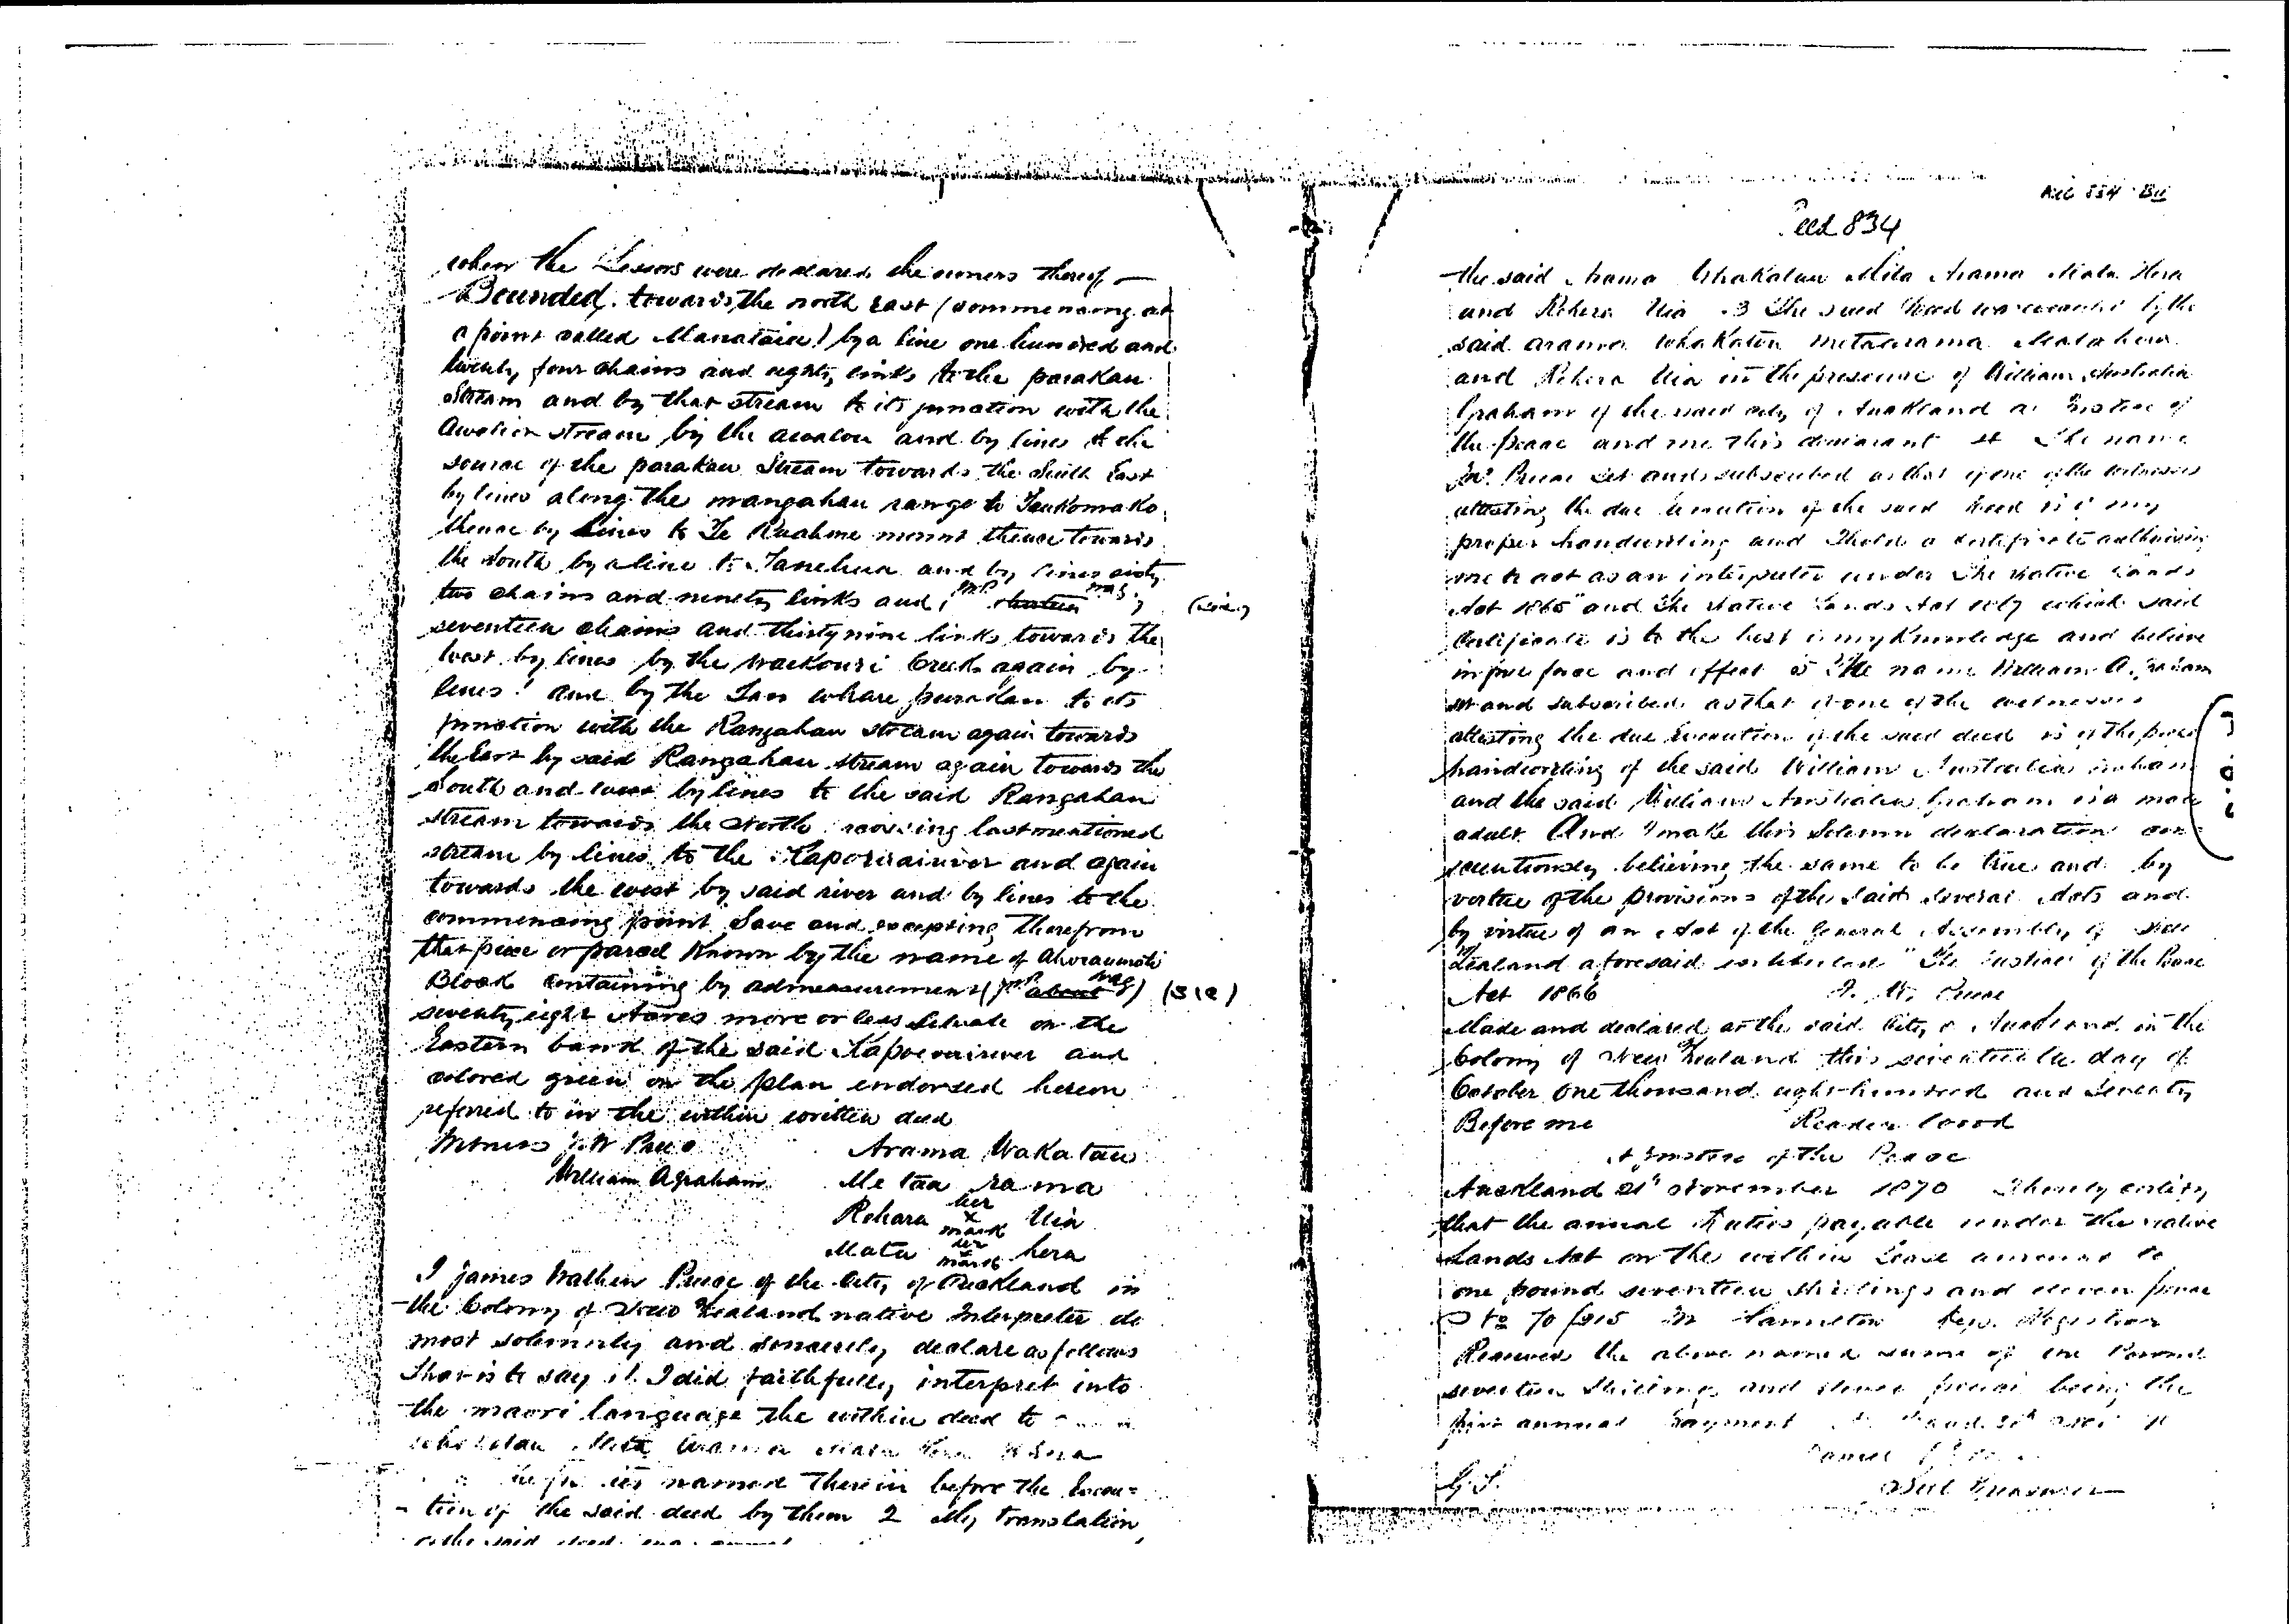 when the Lessors were declared the owners thereof —
Bounded towards the north East (commencing at
a point called Manataia) by a line one hundred and
twenty four chains and eighty links to the parakau
Stream and by that stream to its junction with the
stream by the and by lines to the
source of the parakau Stream towards the South East
by lines along the mangahau range to Taukomako
thence by Lines to Te Ruahine mount thence towards
the South by a line to Tanehua and by lines sixty
two chains and ninety links and (sic)
seventeen chains and thirty nine links towards the
West by lines by the Waikouri Creek again by
lines and by the Tau whare puradau to its
junction with the Rangahau stream again towards
the East by said Rangahau stream again towards the
South and west by lines to the said Rangahau
stream towards the North crossing last mentioned
stream by lines to the and again
towards the west by said river and by lines to the
commencing point Save and excepting therefrom
that piece or parcel known by the name of
Block containing by admeasurement ( about ) (sic)
seventy eight Acres more or less Situate on the
Eastern bank of the said and
colored green on the plan endorsed herein
referred to in the within written deed
Witness J W Preece Arama Wakatau
William A Graham Me taa rama
Rehara her x mark Uia
Mata her x mark hera
I James Wathen Preece of the City of Auckland in
the Colony of New Zealand native Interpreter do
most solemnly and sincerely declare as follows
That is to say 1. I did faithfully interpret into
the maori language the within deed to
Arama Mata Hera
named therein before the Execu=
- tion of the said deed by them 2 My translation
of the said deed
Deed 834
the said Arama Whakatau Mita Arama Mata Hera
and Rehera Uia 3 The said Deed was executed by the
said arama Whakatau metaarama Mata hera
and Rehera Uia in the presence of William Australia
Graham of the said city of Auckland a Justice of
the peace and me this declarant 4 The name
Jas. Preece set and subscribed as that of one of the witnesses
attesting the due Execution of the said Deed is of my
proper handwriting and I hold a certificate authorising
me to act as an interpreter under The Native Lands
Act 1865" and The Native Lands Act 1867 which said
Certificate is to the best of my Knowledge and believe
in full force and effect 5 The name William A. Graham
set and subscribed as that of one of the witnesses
attesting the due Execution of the said deed is of the proper
handwriting of the said William Australia Graham
and the said William Australia Graham is a male
adult And I make this Solemn declaration con-
scientiously believing the same to be true and by
virtue of the provisions of the said several Acts and
by virtue of an Act of the General Assembly of New
Zealand aforesaid intituled "The Justices of the Peace
Act 1866 J. W. Preece
Made and declared at the said City of Auckland in the
Colony of New Zealand this seventeenth day of
October One thousand eight hundred and Seventy
Before me Reader Wood
A Justice of the Peace
Auckland 21st November 1870 I hereby certify
that the annual duties payable under the native
Lands Act on the within Lease amount to
one pound seventeen shillings and eleven pence
Registrar
Received the above named sum of one Pound
seventeen Shillings and eleven pence being the
first annual Payment
Sub Treasurer
G.S.